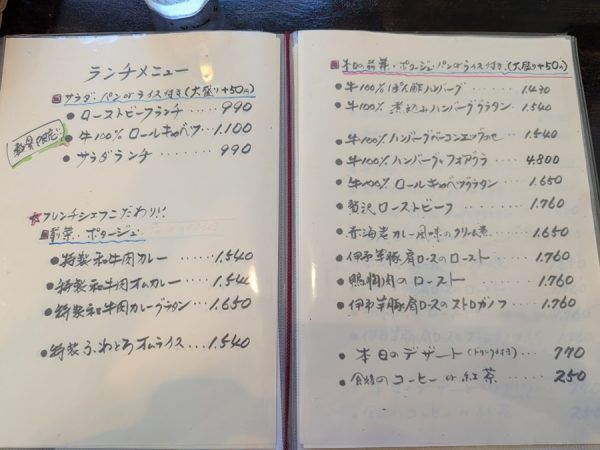 ランチメニュー
サラダ・パンorライス付き(大盛り+50円)
● ローストビーフランチ ・・・ 990
数量限定
● 牛100% ロールキャベツ ・・ 1.100
● サラダランチ ・・・ 990
☆フレンチシェフこだわり!!
前菜・ポタージュ
● 特製和牛肉カレー ・・・ 1.540
● 特製和牛肉オムカレー ・・・ 1.540
● 特製和牛肉カレーグラタン ・・・ 1.650
● 特製ふわとろオムライス ・・・ 1.540
本日の前菜・ポタージュ・パンorライス付き(大盛り+50円)
● 牛100% ハンバーグ ・・・ 1.430
● 牛100% 煮込みハンバーググラタン ・・ 1.540
● 牛100% ハンバーグベーコンエッグのせ ・・・ 1.540
● 牛100% ハンバーグとフォアグラ ・・・ 4.800
● 牛100% ロールキャベツグラタン ・・・ 1.650
● 贅沢ローストビーフ ・・・ 1.760
● 赤海老カレー風味のクリーム煮 ・・・ 1.650
● 伊予芋豚肩ロースのロースト ・・・ 1.760
● 鴨胸肉のロースト ・・・ 1.760
● 伊予芋豚肩ロースのストロガノフ ・・・ 1.760
● 本日のデザート(ドリンク付き) ・・・ 770
● 食後のコーヒーor紅茶 ・・・ 250